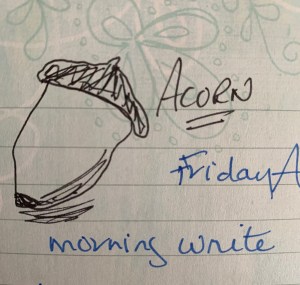 ACORN
Friday A
morning write